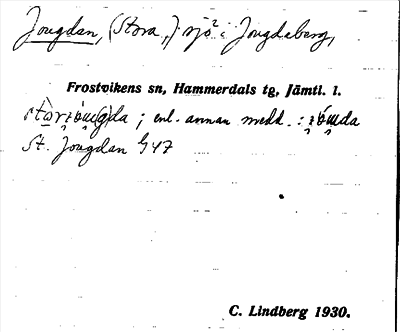 Jougdan, (Stora,) sjö² i Jougdaberg,
Frostvikens sn, Hammerdals tg, Jämtl. l.
; enl. annan medd. :
St. Jougdan G47
C. Lindberg 1930.